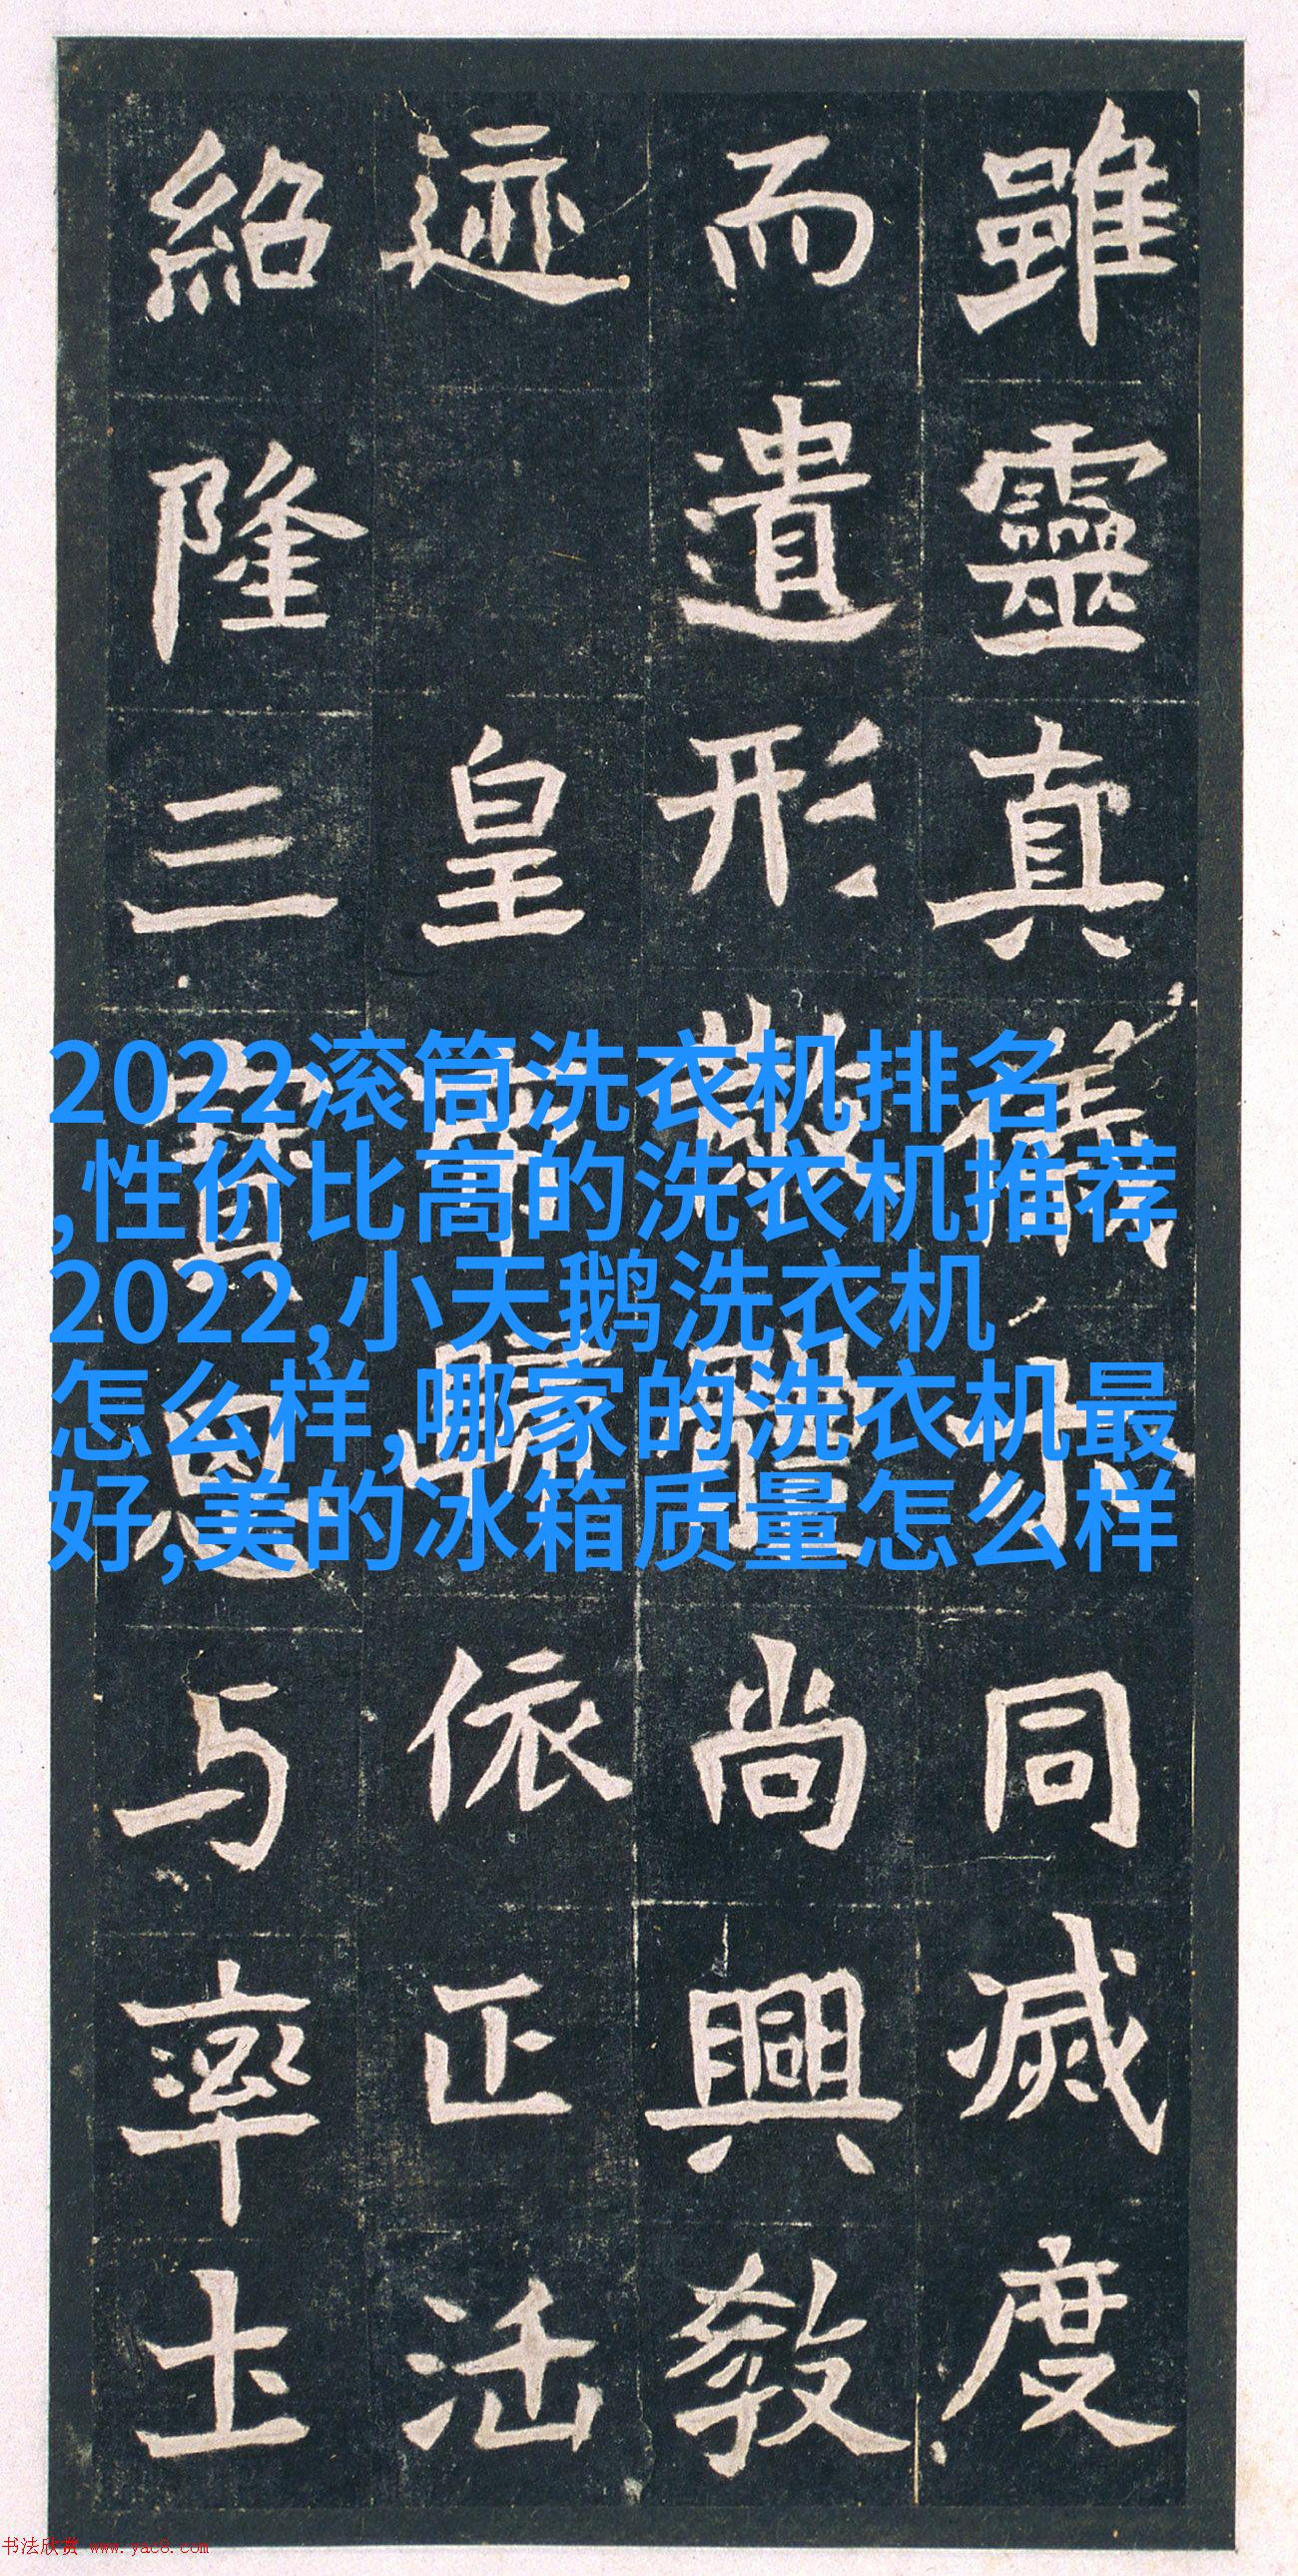 雖靈真儀示同滅度
而遺形散體尚興教
迹 皇帝歸依正法
紹隆三寶思与率土
2022滚筒洗衣机排名
,性价比高的洗衣机推荐
2022,小天鹅洗衣机
怎么样,哪家的洗衣机最
好,美的冰箱质量怎么样
书法欣赏 www.yac8.com